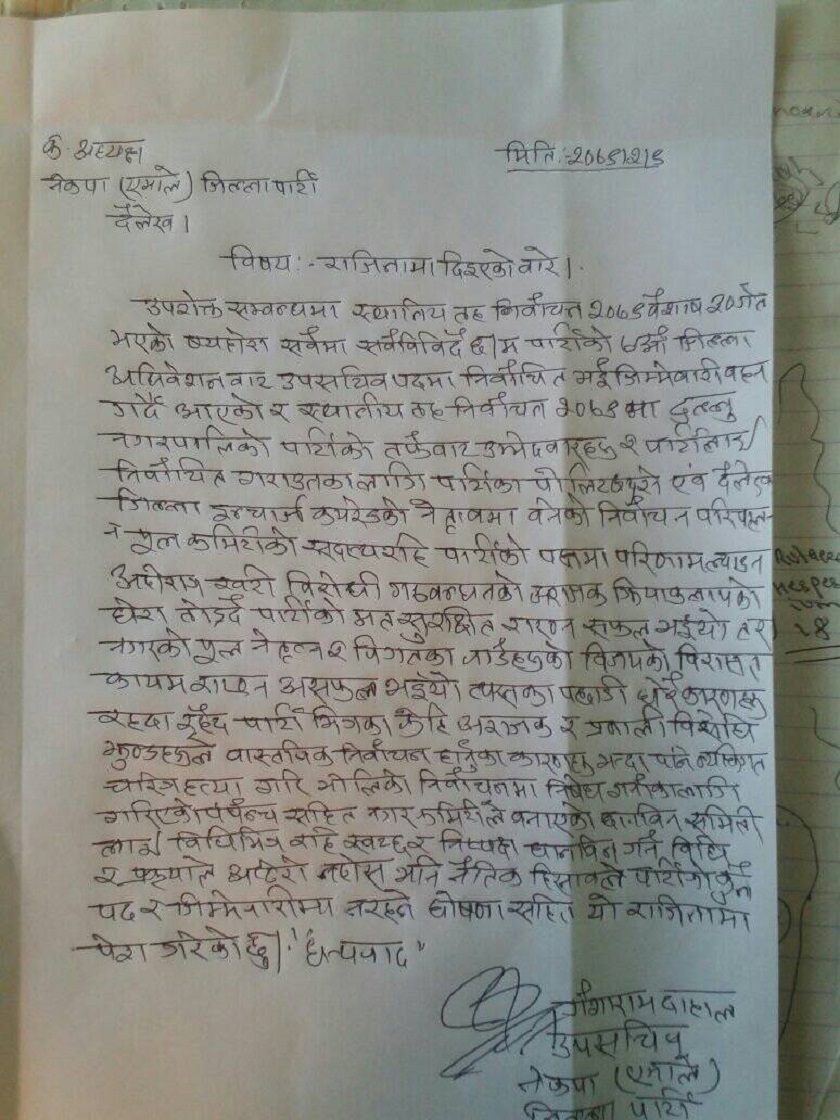 क. अध्यक्ष
मिति :- २०७९।२।९
नेकपा (एमाले) जिल्ला पार्टी
दैलेख ।
विषय :- राजिनामा दिइएको बारे ।
उपरोक्त सम्बन्धमा स्थानिय तह निर्वाचन २०७९ वैशाख ३० गते
भएको व्यहोरा सर्वमा सर्वविदितै छ । म पार्टीको ७औं जिल्ला
अधिवेशन बाट उपसचिव पदमा निर्वाचित भई जिम्मेवारी वहन
गर्दै आएको र स्थानीय तह निर्वाचन २०७९ मा दुल्लु
नगरपालिको पार्टीको तर्फबाट उम्मेदवारहरु र पार्टीलाई
निर्वाचित गराउनका लागि पार्टीका पोलिटब्युरो एवं दैलेख
जिल्ला इन्चार्ज कमरेडको नेतृत्वमा बनेको निर्वाचन परिचालन
मूल कमिटीको सदस्यसहि पार्टीको पक्षमा परिणाम ल्याउन
अहोरात्र खटी विरोधी गठबन्धनको अराजक क्रियाकलापको
घेरा तोड्दै पार्टीको मत सुरक्षित राख्न सफल भईयो तर
नगरको मूल नेतृत्व र विगतका वार्डहरुको विजयको विरासत
कायम राख्न असफल भईयो त्यसका पछाडी धेरै कारणहरु
रहदा रहँदै पार्टी भित्रका केहि अराजक र प्रणाली विरोधि
झुण्डहरुले वास्तविक निर्वाचन हार्नुका कारणहरु भन्दा पनि व्यक्तिगत
चरित्रहत्या गरि भोलिको निर्वाचनमा निषेध गर्नकालागि
गरिएको षडयन्त्र सहित नगर कमिटीले बनाएको छानविन समिती
लाई विधिभित्र राहि स्वच्छ र निष्पक्ष छानविन गर्न विधि
र प्रकृयाले अप्ठेरो नहोस भनि नैतिक हिसाबले पार्टीको कुनै
पद र जिम्मेवारीमा नरहने घोषणा सहित यो राजिनामा
पेश गरेको छु । "धन्यवाद"
गंगाराम दाहाल
उपसचिव
नेकपा (एमाले)
जिल्ला पार्टी